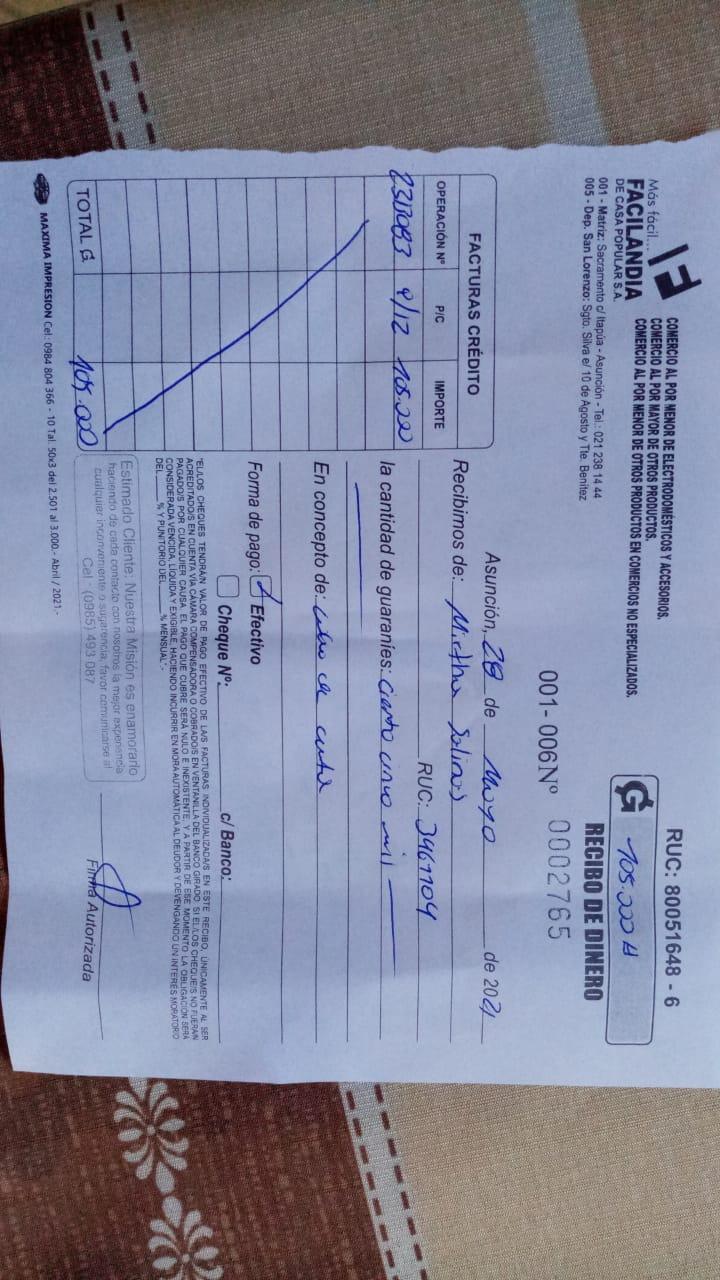 Más fácil...
FACILANDIA
DE CASA POPULAR S.A.
COMERCIO AL POR MENOR DE ELECTRODOMÉSTICOS Y ACCESORIOS.
COMERCIO AL POR MAYOR DE OTROS PRODUCTOS.
COMERCIO AL POR MENOR DE OTROS PRODUCTOS EN COMERCIOS NO ESPECIALIZADOS.
001 - Matriz: Sacramento c/ Itapúa - Asunción - Tel.: 021 238 14 44
005 - Dep. San Lorenzo: Sgto. Silva e/ 10 de Agosto y Tte. Benítez
RUC: 80051648 - 6
G 105.000
RECIBO DE DINERO
001- 006Nº 0002765
Asunción, 28 de Mayo de 2021
Recibimos de: Mirtha Salinas
RUC: 3461104
la cantidad de guaraníes: Ciento cinco mil
En concepto de: cobro de cuota
Forma de pago: Efectivo
Cheque Nº: c/ Banco:
*EL/LOS CHEQUES TENDRÁN VALOR DE PAGO EFECTIVO DE LA/S FACTURAS INDIVIDUALIZADA/S EN ESTE RECIBO, ÚNICAMENTE AL SER
ACREDITADO/S EN CUENTA VÍA CÁMARA COMPENSADORA O COBRADO/S EN VENTANILLA DEL BANCO GIRADO. SI EL/LOS CHEQUE/S NO FUERAN
PAGADO/S POR CUALQUIER CAUSA, EL PAGO QUE CUBRE SERÁ NULO E INEXISTENTE, Y A PARTIR DE ESE MOMENTO LA OBLIGACIÓN SERÁ
CONSIDERADA VENCIDA, LÍQUIDA Y EXIGIBLE, HACIENDO INCURRIR EN MORA AUTOMÁTICA AL DEUDOR Y DEVENGANDO UN INTERÉS MORATORIO
DEL % Y PUNITORIO DEL % MENSUAL*.-
FACTURAS CRÉDITO
OPERACIÓN Nº P/C IMPORTE
9/12 105.000
TOTAL G. 105.000
Estimado Cliente: Nuestra Misión es enamorarlo
haciendo de cada contacto con nosotros la mejor experiencia
cualquier inconveniente o sugerencia, favor comunicarse al
Cel.: (0985) 493 087
Firma Autorizada
MAXIMA IMPRESION Cel.: 0984 804 366 - 10 Tal. 50x3 del 2.501 al 3.000.- Abril / 2021.-